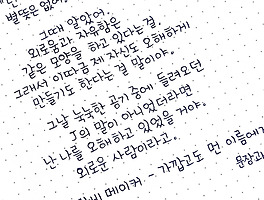 별뜻은 없어
그때 알았어.
외로움과 자유함은
같은 모양을 하고 있다는 걸.
그래서 이따금 제 자신도 오해하게
만들기도 한다는 걸 말이야.
그날 눅눅한 공기 중에 들려오던
J의 말이 아니었더라면
난 나를 오해하고 있었을 거야.
외로운 사람이라고.
메이커 - 가깝고도 먼 이름에게
문장과